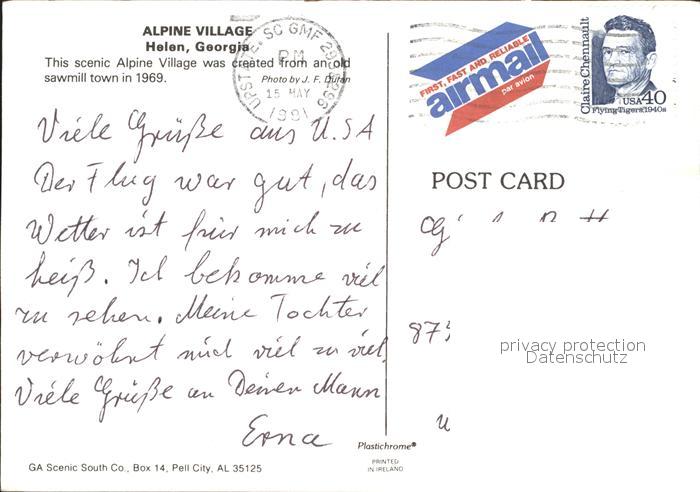 ALPINE VILLAGE
Helen, Georgia
This scenic Alpine Village was created from an old
sawmill town in 1969. Photo by J. F. Duran
Viele Grüße aus U.SA
Der Flug war gut, das
Wetter ist für mich zu
heiß. Ich bekomme viel
zu sehen. Meine Tochter
verwöhnt mich viel zu viel,
Viele Grüße an Deinen Mann
Erna
GA Scenic South Co., Box 14, Pell City, AL 35125
Plastichrome®
PRINTED
IN IRELAND
SC GMF
PM
15 MAY
1991
FIRST, FAST AND RELIABLE
airmail
par avion
Claire Chennault
USA 40
Flying Tigers, 1940s
POST CARD
privacy protection
Datenschutz